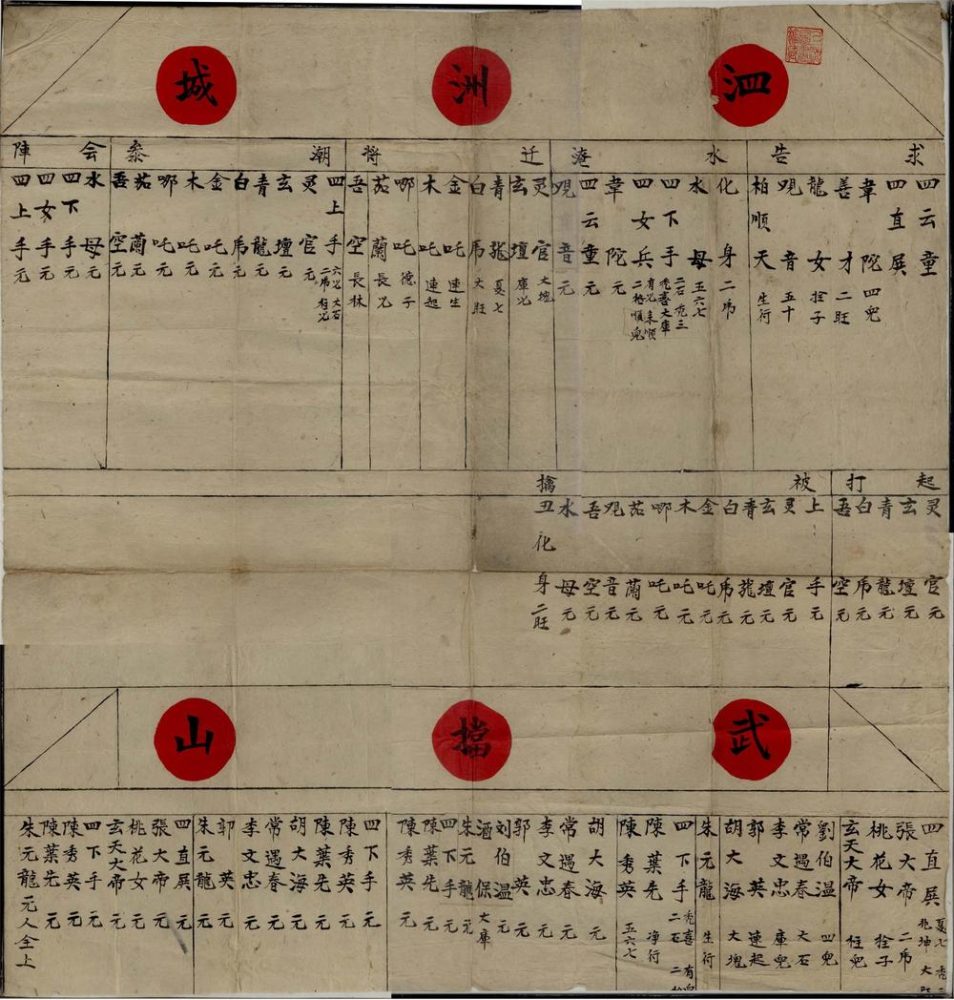 泗洲城
求告
水淹
迁将
潮叅
会陣
四云童
四直展
韋陀 四兜
善才 二旺
龍女 拴子
覌音 五十
柏順天 生行
化身 二㡣
水母 五六七
四下手
四女兵
韋陀 元
四云童 元
覌音 元
灵官 大塊
玄壇 庫児
青龍 夏七
白虎 大旺
金吒 連生
木吒 連起
哪吒 德子
茄蘭 長児
吾空 長林
四上手
灵官 元
玄壇 元
青龍 元
白虎 元
金吒 元
木吒 元
哪吒 元
茄蘭 元
吾空 元
水母 元
四下手 元
四女手 元
四上手 元
起打
被擒
灵官 元
玄壇 元
青龍 元
白虎 元
吾空 元
上手 元
灵官 元
玄壇 元
青龍 元
白虎 元
金吒 元
木吒 元
哪吒 元
茄蘭 元
覌音 元
吾空 元
水母 元
丑化身 二旺
武擋山
四直展
張大帝 二虎
桃花女 拴子
玄天大帝 柱兜
劉伯温 四兜
常遇春 大石
李文忠 庫兜
郭英 連起
胡大海 大塊
朱元龍 生行
四下手
陳葉先 净行
陳秀英 五六七
胡大海 元
常遇春 元
李文忠 元
郭英 元
刘伯温 元
酒保 大庫
朱元龍 元
四下手 元
陳葉先 元
陳秀英 元
四下手 元
陳秀英 元
陳葉先 元
胡大海 元
常遇春 元
李文忠 元
郭英 元
朱元龍 元
四直展 元
張大帝 元
桃花女 元
玄天大帝 元
四下手 元
陳秀英 元
陳葉先 元
朱元龍 元人仝上